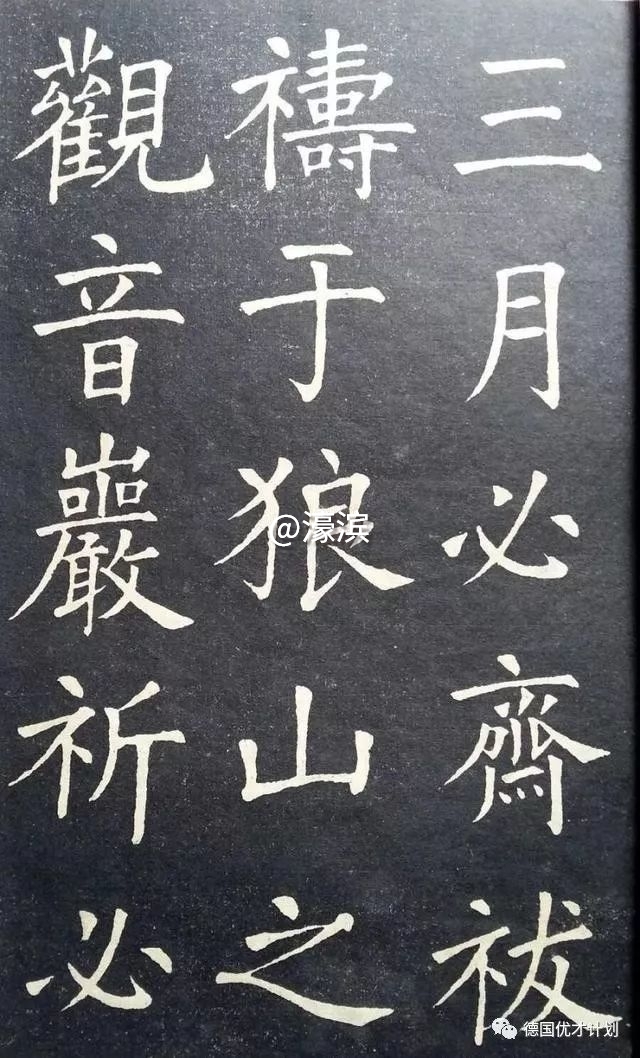 三月必齋祓
禱于狼山之
觀音巖祈必
@濠滨
德国优才计划